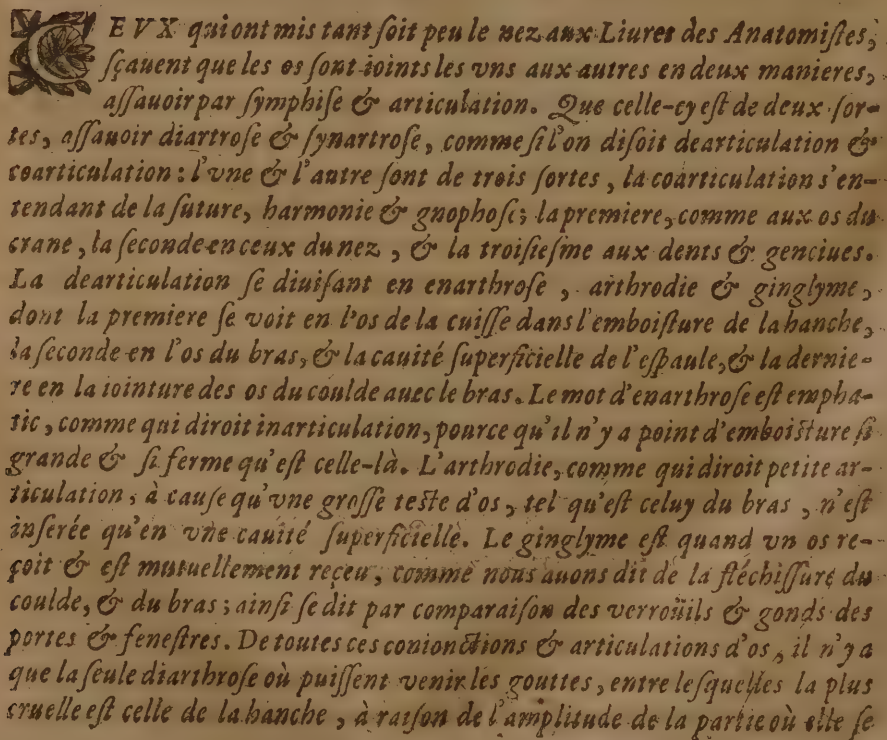 CEVX qui ont mis tant ſoit peu le nez aux Liures des Anatomiſtes,
ſçauent que les os ſont ioints les vns aux autres en deux manieres,
aſſauoir par ſymphiſe & articulation. Que celle-cy eſt de deux ſor-
tes, aſſauoir diartroſe & ſynartroſe, comme ſi l'on diſoit dearticulation &
coarticulation: l'vne & l'autre ſont de trois ſortes, la coarticulation s'en-
tendant de la ſuture, harmonie & gnophoſe; la premiere, comme aux os du
crane, la ſeconde en ceux du nez, & la troiſieſme aux dents & genciues.
La dearticulation ſe diuiſant en enarthroſe, arthrodie & ginglyme,
dont la premiere ſe voit en l'os de la cuiſſe dans l'emboiſture de la hanche,
la ſeconde en l'os du bras, & la cauité ſuperficielle de l'eſpaule, & la dernie-
re en la iointure des os du coulde auec le bras. Le mot d'enarthroſe eſt empha-
tic, comme qui diroit inarticulation, pource qu'il n'y a point d'emboiſture ſi
grande & ſi ferme qu'eſt celle-là. L'arthrodie, comme qui diroit petite ar-
ticulation, à cauſe qu'vne groſſe teſte d'os, tel qu'eſt celuy du bras, n'eſt
inſerée qu'en vne cauité ſuperficielle. Le ginglyme eſt quand vn os re-
çoit & eſt mutuellement receu, comme nous auons dit de la fléchiſſure du
coulde, & du bras; ainſi ſe dit par comparaiſon des verroüils & gonds des
portes & feneſtres. De toutes ces conionctions & articulations d'os, il n'y a
que la ſeule diarthroſe où puiſſent venir les gouttes, entre leſquelles la plus
cruelle eſt celle de la hanche, à raiſon de l'amplitude de la partie où elle ſe